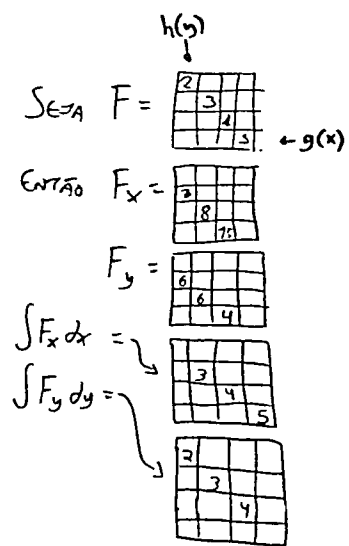 h(y)
SEJA F =
2
3
4
5
← g(x)
ENTÃO Fx =
3
8
15
Fy =
6
6
4
∫Fx dx =
3
4
5
∫Fy dy =
2
3
4